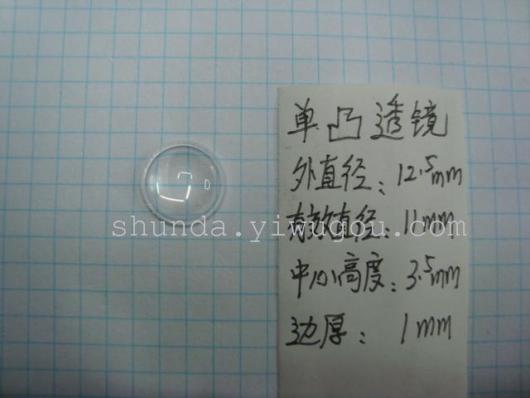 单凸透镜
外直径：12.5mm
有效直径：11mm
shunda.yiwugou.com
中心高度：3.5mm
边厚：1mm